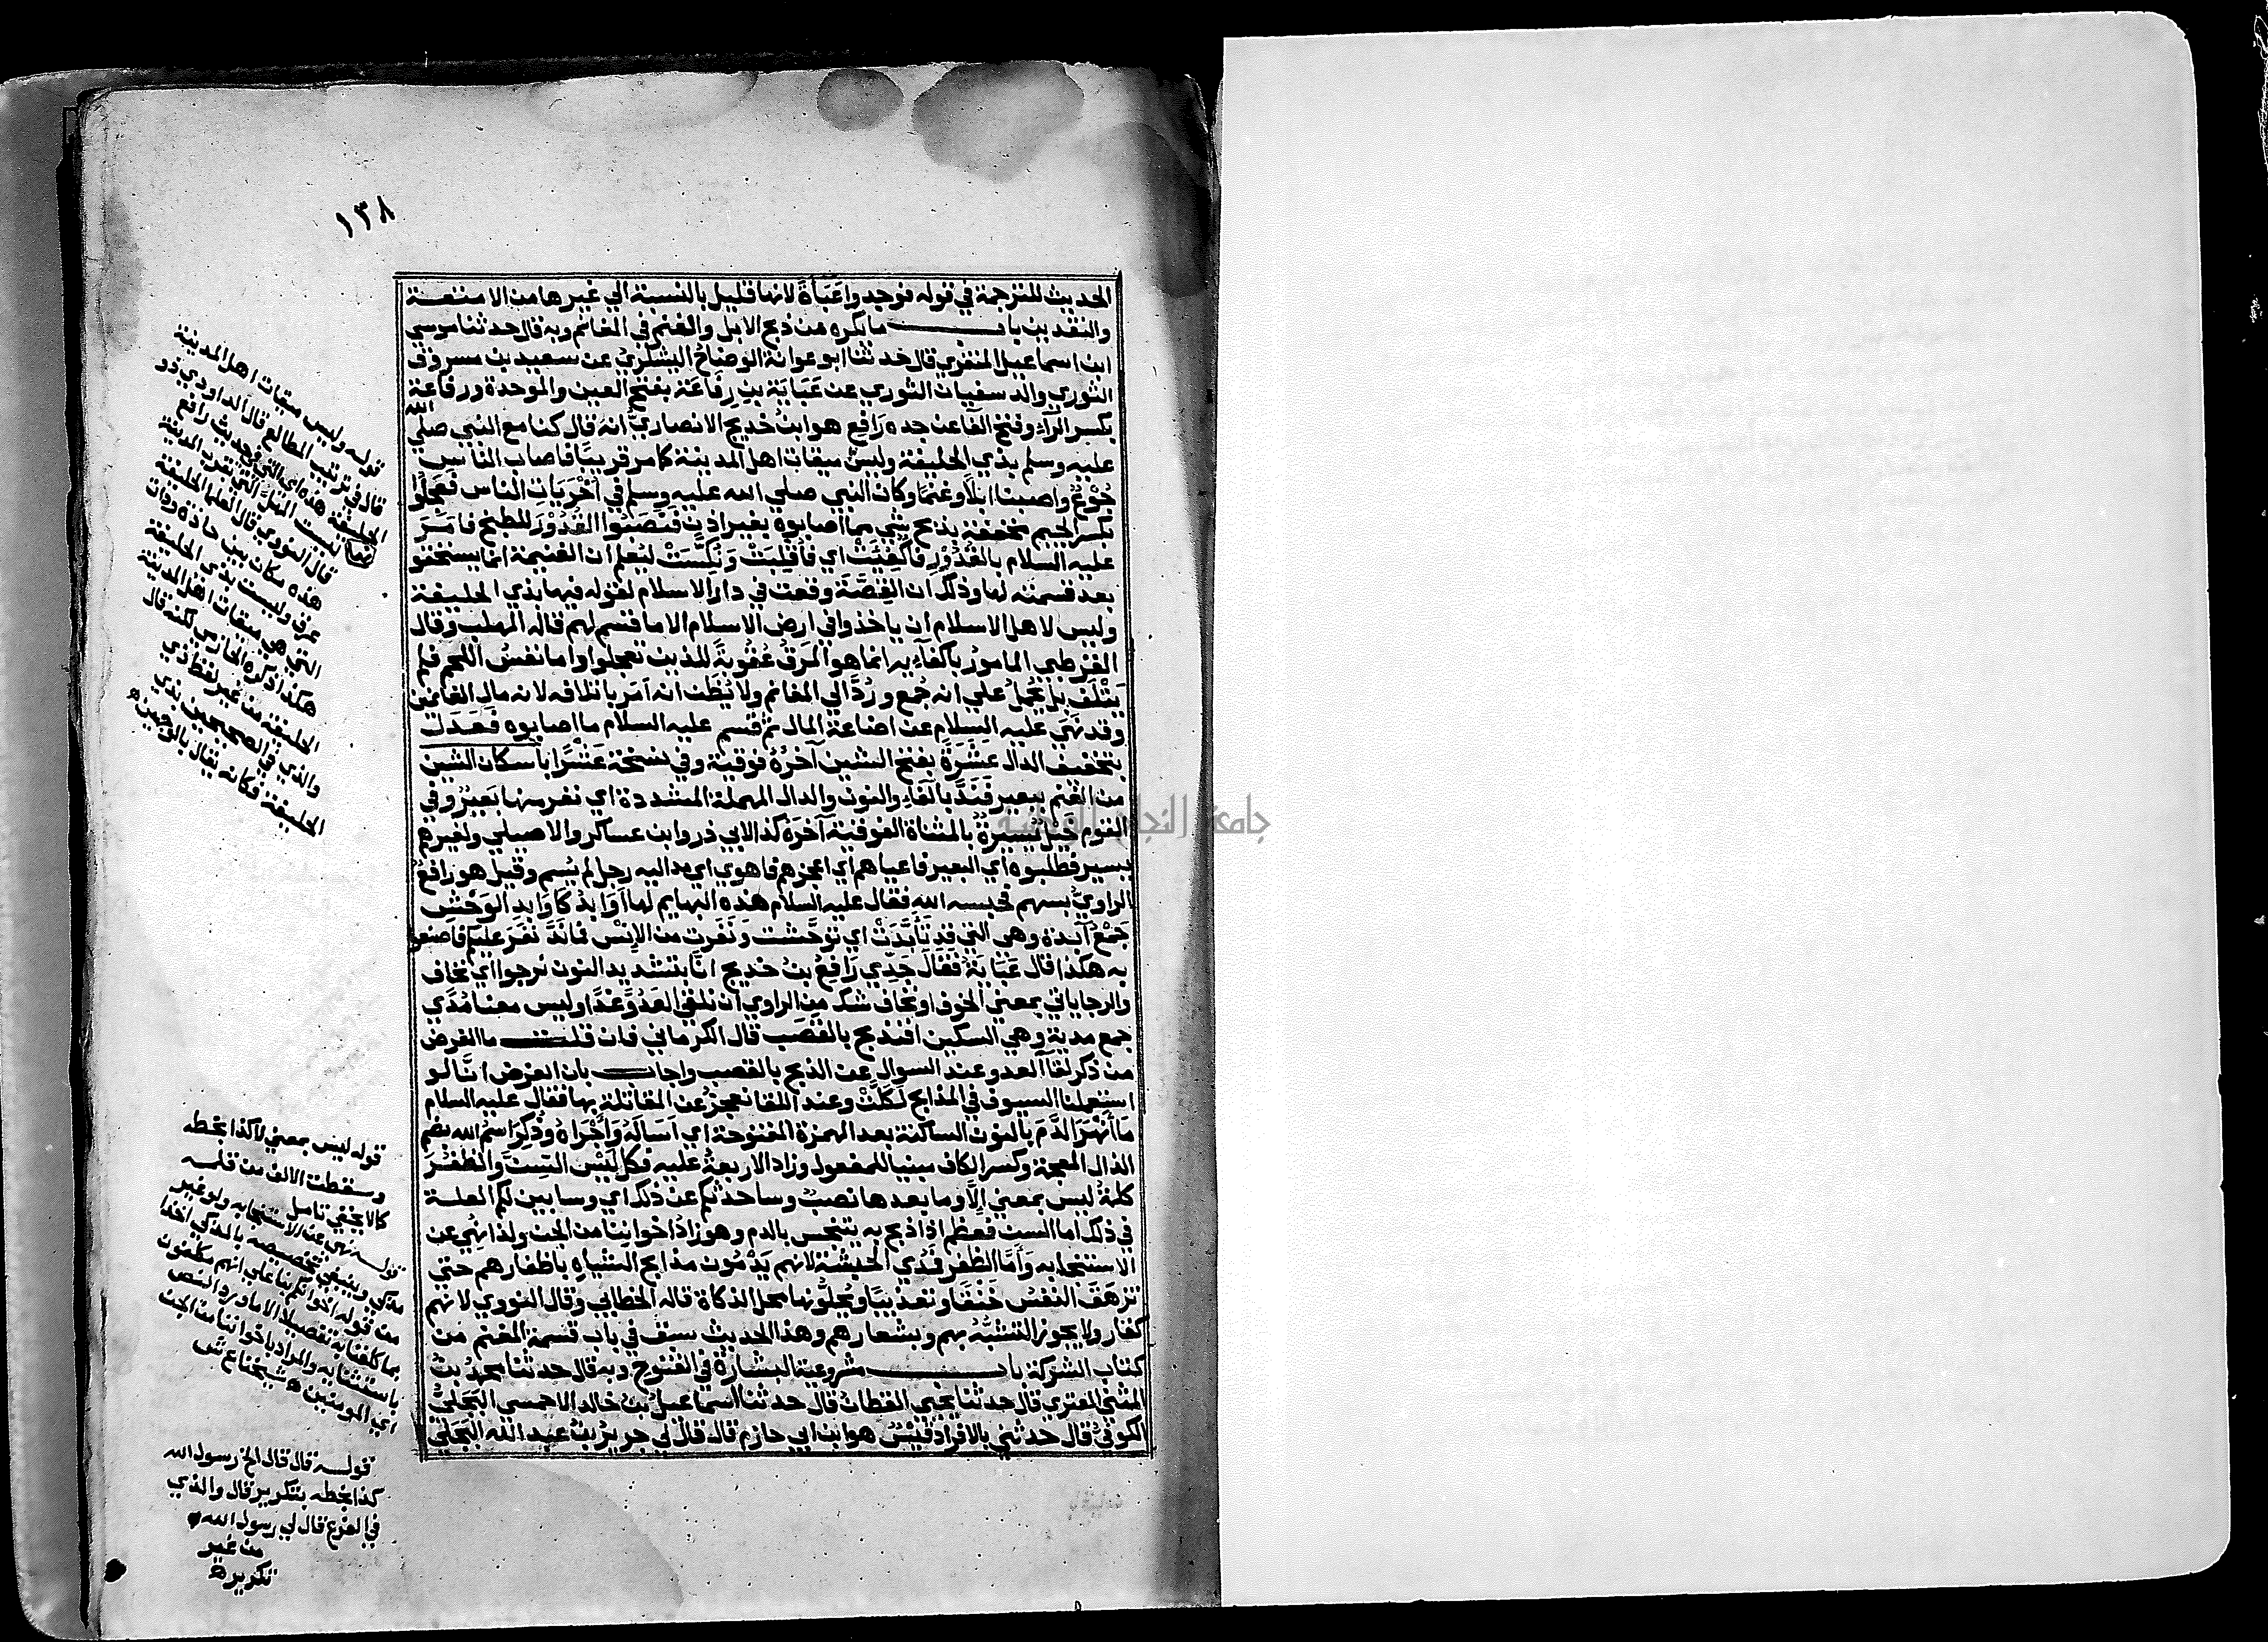 ١٣٨
الحديث للترجمة في قوله فوجدوا عَبَأَةً لانها قليل بالنسبة الي غيرها من الامتعة
والنقدين باب ما يكره من ذبح الابل والغنم في المغانم وبه قال حدثنا موسي
ابن اسماعيل المنقري قال حدثنا ابو عوانة الوضاح اليشكري عن سعيد بن مسروق
الثوري والد سفيان الثوري عن عَبَايَة بن رِفَاعَة بفتح العين والموحدة ورفاعة
بكسر الرآء وفتح الفآ عن جده رَافِع هو ابن خديج الانصاري انه قال كنا مع النبي صلي الله
عليه وسلم بذي الحليفة وليس ميقات اهل المدينة كما مر قريبًا فاصاب الناس
جُوعٌ واصبنا ابلًا وغنمًا وكان النبي صلي الله عليه وسلم في اُخْرَيَاتِ الناس فعَجِلُوا
بكسر الجيم مخففة بذبح شي مما اصابوه بغير اذن فنَصَبُوا القُدُوْرَ للطبخ فامَرَ
عليه السلام بالقُدُوْرِ فاُكْفِئَتْ اي فاُقْلِبَتْ وَنُكِّسَتْ ليعلم ان الغنيمة انما يستحقو
بعد قسمته لها وذلك ان القِصَّةَ وقعت في دار الاسلام لقوله فيها بذي الحليفة
وليس لاهل الاسلام ان ياخذوا في ارض الاسلام الا ما قسم لهم قاله المهلب وقال
القرطبي المامور باكفآيه انما هو المَرَقُ عُقُوبةً للذين تعجلوا واما نفسُ اللحم فلم
يَتْلَف بل يُحْمل علي انه جُمع ورُدَّ الي المغانم ولا يُظَن انه اَمَر باتلافه لانه مال الغانمين
وقد نَهَي عليه السلام عن اضاعة المال ثم قسم عليه السلام ما اصابوه فَعَدَل
بتخفيف الدال عَشَرَةً بفتح الشين آخرُهُ فوقية وفي نسخة عَشْرًا باسكان الشين
من الغنم ببعير فَنَدَّ بالفاء والنون والدال المهملة المشددة اي نفر منها بَعِيْرٌ وفي
القوم خَيْلٌ يَسِيْرَةٌ بالمثناة الفوقية آخره كذا لابي ذر وابن عساكر والاصيلي ولغيرهم
يسير فطلبوه اي البعير فاعياهم اي اعجزهم فاهوي اي مد اليه رجل لم يُسم وقيل هو رافعُ
الراويُ بسهم فحبسه الله فقال عليه السلام هذه البهايم لها اَوَابِدُ كَاَوَابِدِ الوَحْشِ
جَمْعُ آبدة وهي التي قد تَأَبَّدَتْ اي توحَّشت ونَفَرت من الاِنْس فما نَدَّ نَفَرَ عليكم فاصنعوا
به هكذا قال عَبَايَةُ فقال جَدِّي رَافِعُ بنُ خديج انَّا بتشديد النون نرجوا اي نخاف
والرجا ياتي بمعني الخوف او نخاف شك من الراوي ان نلقي العَدُوَّ غدًا وليس معنا مُدًي
جمع مدية وهي السكين افنذبح بالقَصَب قال الكرماني فان قلت ما الغرض
من ذكر لقآ العدو عند السوال عن الذبح بالقصب واجاب بان الغرض انَّا لو
استعملنا السيوف في المذابح لَكَلَّتْ وعند اللقا نعجزُ عن المقاتلة بها فقال عليه السلام
مَا أَنْهَرَ الدَّمَ بالنون الساكنة بعد الهمزة المفتوحة اي اَسَالَهُ وَاَجْرَاهُ وذُكِرَ اسمُ الله بضم
الذال المعجمة وكسر الكاف مبنيا للمفعول وزاد الاربعةُ عليه فكل لَيْسَ السِّنَّ والظُفُرَ
كلمةُ ليس بمعني اِلَّا وما بعدها نصبٌ وساحدثكم عن ذلك اي وسابين لكم العلة
في ذلك اما السن فعظم اذا ذبح به يتنجس بالدم وهو زادُ اخواننا من الجن ولذا نُهِي عن
الاستنجا به وَأَمَّا الظفر فمُدي الحبشة لانهم يَدْمُون مذابح الشياه باظفارهم حتي
تزهَقَ النفسُ خَنْقًا وتعذيبًا ويُحِلُّونها محل الذكاة قاله الخطابي وقال النووي لانهم
كفار ولا يجوز التشبُّهُ بهم وبشعارهم وهذا الحديث سبق في باب قسمة المغنم من
كتاب الشركة باب مشروعية البشارة في الفتوح وبه قال حدثنا محمد بنُ
المثني العنزي قال حدثنا يحيي القطان قال حدثنا اسماعيل بن خالد الاحمسي البجليُّ
الكوفيُ قال حدثني بالافراد قيس هو ابن ابي حازم قال قال لي جرير بنُ عبد الله البَجَليُّ
قوله وليس ميقات اهل المدينة
قال في ترتيب المطالع قال الداودي ذو
الحليفة هذه في حديث رافع
ليست المهل التي بقرب المدينة
قال النووي قال العلما الحليفة
هذه مكان بين حاذه وذات
عرق وليست بذي الحليفة
التي هي ميقات اهل المدينة
هكذا ذكره الحازمي لكنه قال
الحليفة من غير لفظ ذي
والذي في الصحيحين بذي
الحليفة فكانه يقال بالوجهين
قوله ليس بمعني لا كذا بخطه
وسقطت الالف من قلمه
كما لا يخفي تامل
قوله نهي عن الاستنجا به ولو غير
مذكي وينبغي تخصيصه بالمذكي اخذا
من قوله اخوانكم بنا علي انهم مكلفون
بما كلفنا به تفصيلا الا ما ورد النص
باستثنايه والمراد باخواننا من الجن
اي المومنين ه شيخنا ع ش
قوله قال قال الخ رسول الله
كذا بخطه بتكرير قال والذي
في الفرع قال لي رسول الله
من غير
تكرير ه
جامعة النجاح الوطنية